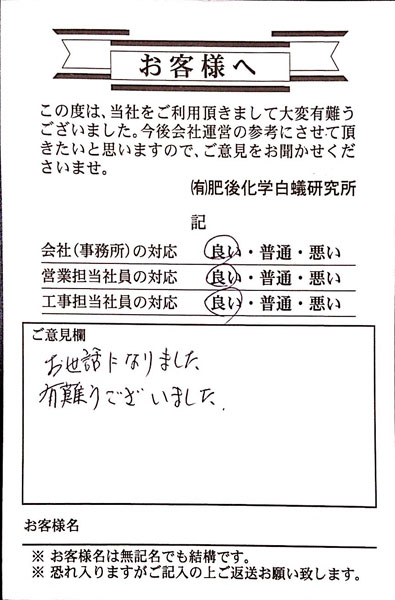 お客様へ
この度は、当社をご利用頂きまして大変有難う
ございました。今後会社運営の参考にさせて頂
きたいと思いますので、ご意見をお聞かせくだ
さいませ。
㈲肥後化学白蟻研究所
記
会社(事務所)の対応 良い・普通・悪い
営業担当社員の対応 良い・普通・悪い
工事担当社員の対応 良い・普通・悪い
ご意見欄
お世話になりました
有難うございました.
お客様名
※ お客様名は無記名でも結構です。
※ 恐れ入りますがご記入の上ご返送お願い致します。